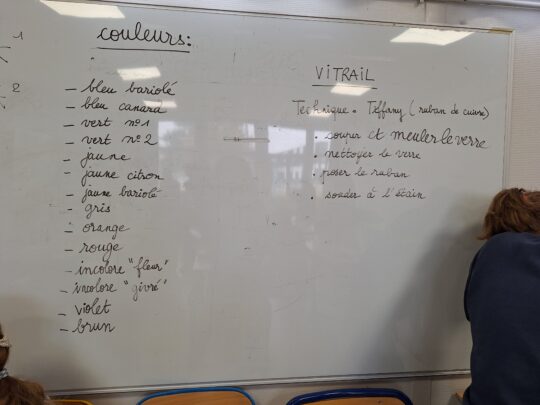 1
2
couleurs:
– bleu bariolé
– bleu canard
– vert n°1
– vert n°2
– jaune
– jaune citron
– jaune bariolé
– gris
– orange
– rouge
– incolore "fleur"
– incolore "givré"
– violet
– brun
VITRAIL
Technique. Tiffany (ruban de cuivre)
. couper et meuler le verre
. nettoyer le verre
. poser le ruban
. souder à l'étain